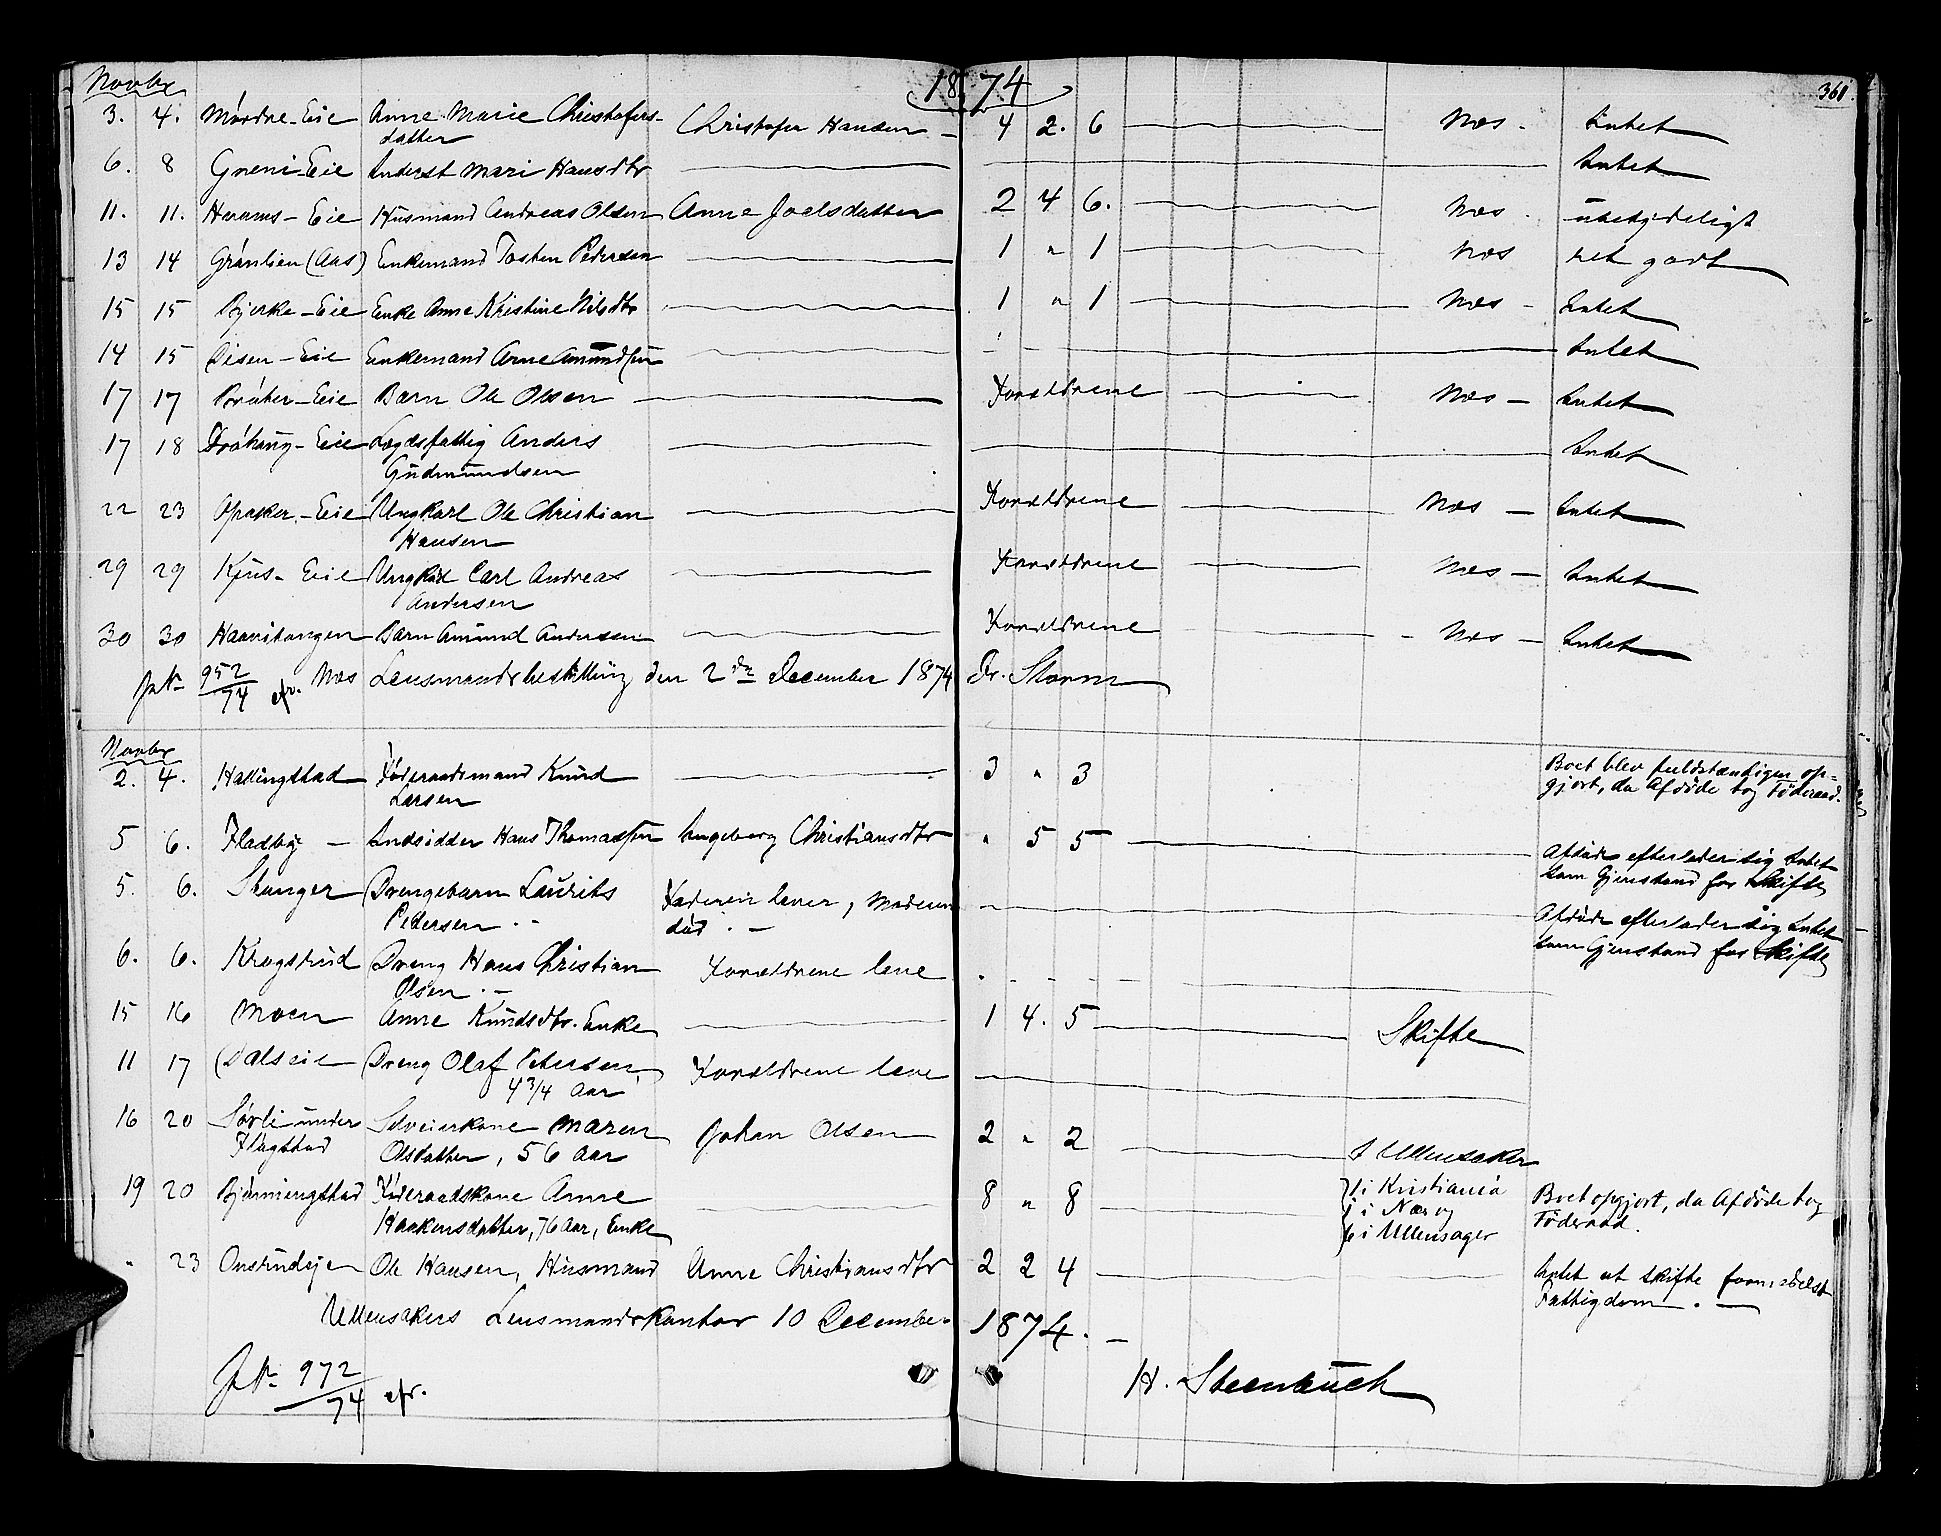 Novbr 1874 361
3. 4. Mørdre-Eie Anne Marie Christofers- Christofer Hansen - 4 2. 6 Næs - Intet
datter
6. 8 Greni-Eie Inderst Mari Hansdtr Intet
11. 11. Herams-Eie Husmand Andreas Olsen Anne Joelsdatter 2 4 6. Næs - ubetydeligt
13 14 Grønlien (Aas) Enkemand Tosten Pedersen 1 " 1 Næs ret godt
15 15 Bjerke-Eie Enke Anne Kristine Nilsdtr 1 " 1 Næs - Intet
14 15 Disen-Eie Enkemand Arne Amundsen Intet
17 17 Bråter-Eie Barn Ole Olsen Forældrene Næs - Intet
17 18 Eie Lægdsfattig Anders Intet
Gudmundsen
22 23 Opaker-Eie Ungkarl Ole Christian Forældrene Næs - Intet
Hansen
29 29 Kjus-Eie Carl Andreas Forældrene Næs - Intet
Andersen
30 30 Haavitangen Barn Amund Andersen Forældrene - Næs - Intet
952/74 Næs Lensmandsbestilling den 2den December 1874 Storm
Novbr
2. 4. Hallingstad Føderaadsmand Knud 3 " 3 Boet blev fuldstændigen op-
Larsen gjort, da Afdøde tog Føderaad.
5 6. Fladby - Indsidder Hans Thomassen Ingeborg Christiansdtr " 5 5 Afdøde efterlader sig Intet
som Gjenstand for Skifte
5. 6. Stanger Drengebarn Laurits Faderen lever, Moderen
Pedersen. - død. - Afdøde efterlader sig Intet
som Gjenstand for Skifte
6. 6. Krogstrud Dreng Hans Christian Forældrene leve
Olsen. -
15 16 Moen Anne Knudsdtr. Enke 1 4. 5 Skifte
11 17 Dalseie Dreng Olaf Petersen, Forældrene leve
4 3/4 Aar
16 20 Sørli under Selveierkone Maren Johan Olsen 2 " 2 I Ullensaker
Flugstad Olsdatter, 56 Aar
19 20 Føderaadskone Anne 8 " 8 1 i Kristiania
Haakensdatter, 76 Aar, Enke 1 i Næs og Boet opgjort, da Afdøde tog
6 i Ullensager Føderaad.
" 23 Onsrudeje Ole Hansen, Husmand Anne Christiansdtr 2 2 4 Intet at skifte formedelst
Fattigdom. -
Ullensakers Lensmandskontor 10 December 1874. -
972/74 H. Steenbuch